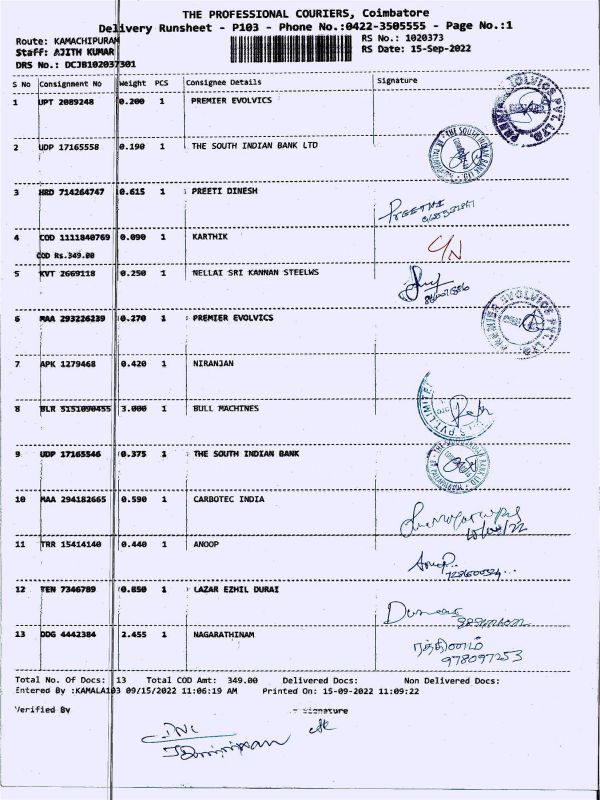 THE PROFESSIONAL COURIERS, Coimbatore
Delivery Runsheet - P103 - Phone No.:0422-3505555 - Page No.:1
Route: KAMACHIPURAM RS No.: 1020373
Staff: AJITH KUMAR RS Date: 15-Sep-2022
DRS No.: DCJB102037301
S No Consignment No Weight PCS Consignee Details Signature
1 UPT 2089248 0.200 1 PREMIER EVOLVICS
2 UDP 17165558 0.190 1 THE SOUTH INDIAN BANK LTD
3 HRD 714264747 0.615 1 PREETI DINESH
PREETHI
4 COD 1111840769 0.090 1 KARTHIK
COD Rs.349.00
5 KVT 2669118 0.250 1 NELLAI SRI KANNAN STEELWS
6 MAA 293226239 0.270 1 PREMIER EVOLVICS
7 APK 1279468 0.420 1 NIRANJAN
8 BLR 5151090455 3.000 1 BULL MACHINES
9 UDP 17165546 0.375 1 THE SOUTH INDIAN BANK
10 MAA 294182665 0.590 1 CARBOTEC INDIA
11 TRR 15414140 0.440 1 ANOOP
Anoop
12 TEN 7346789 0.850 1 LAZAR EZHIL DURAI
13 DDG 4442384 2.455 1 NAGARATHINAM
ரத்தினம்
978097253
Total No. Of Docs: 13 Total COD Amt: 349.00 Delivered Docs: Non Delivered Docs:
Entered By :KAMALA103 09/15/2022 11:06:19 AM Printed On: 15-09-2022 11:09:22
Verified By Signature